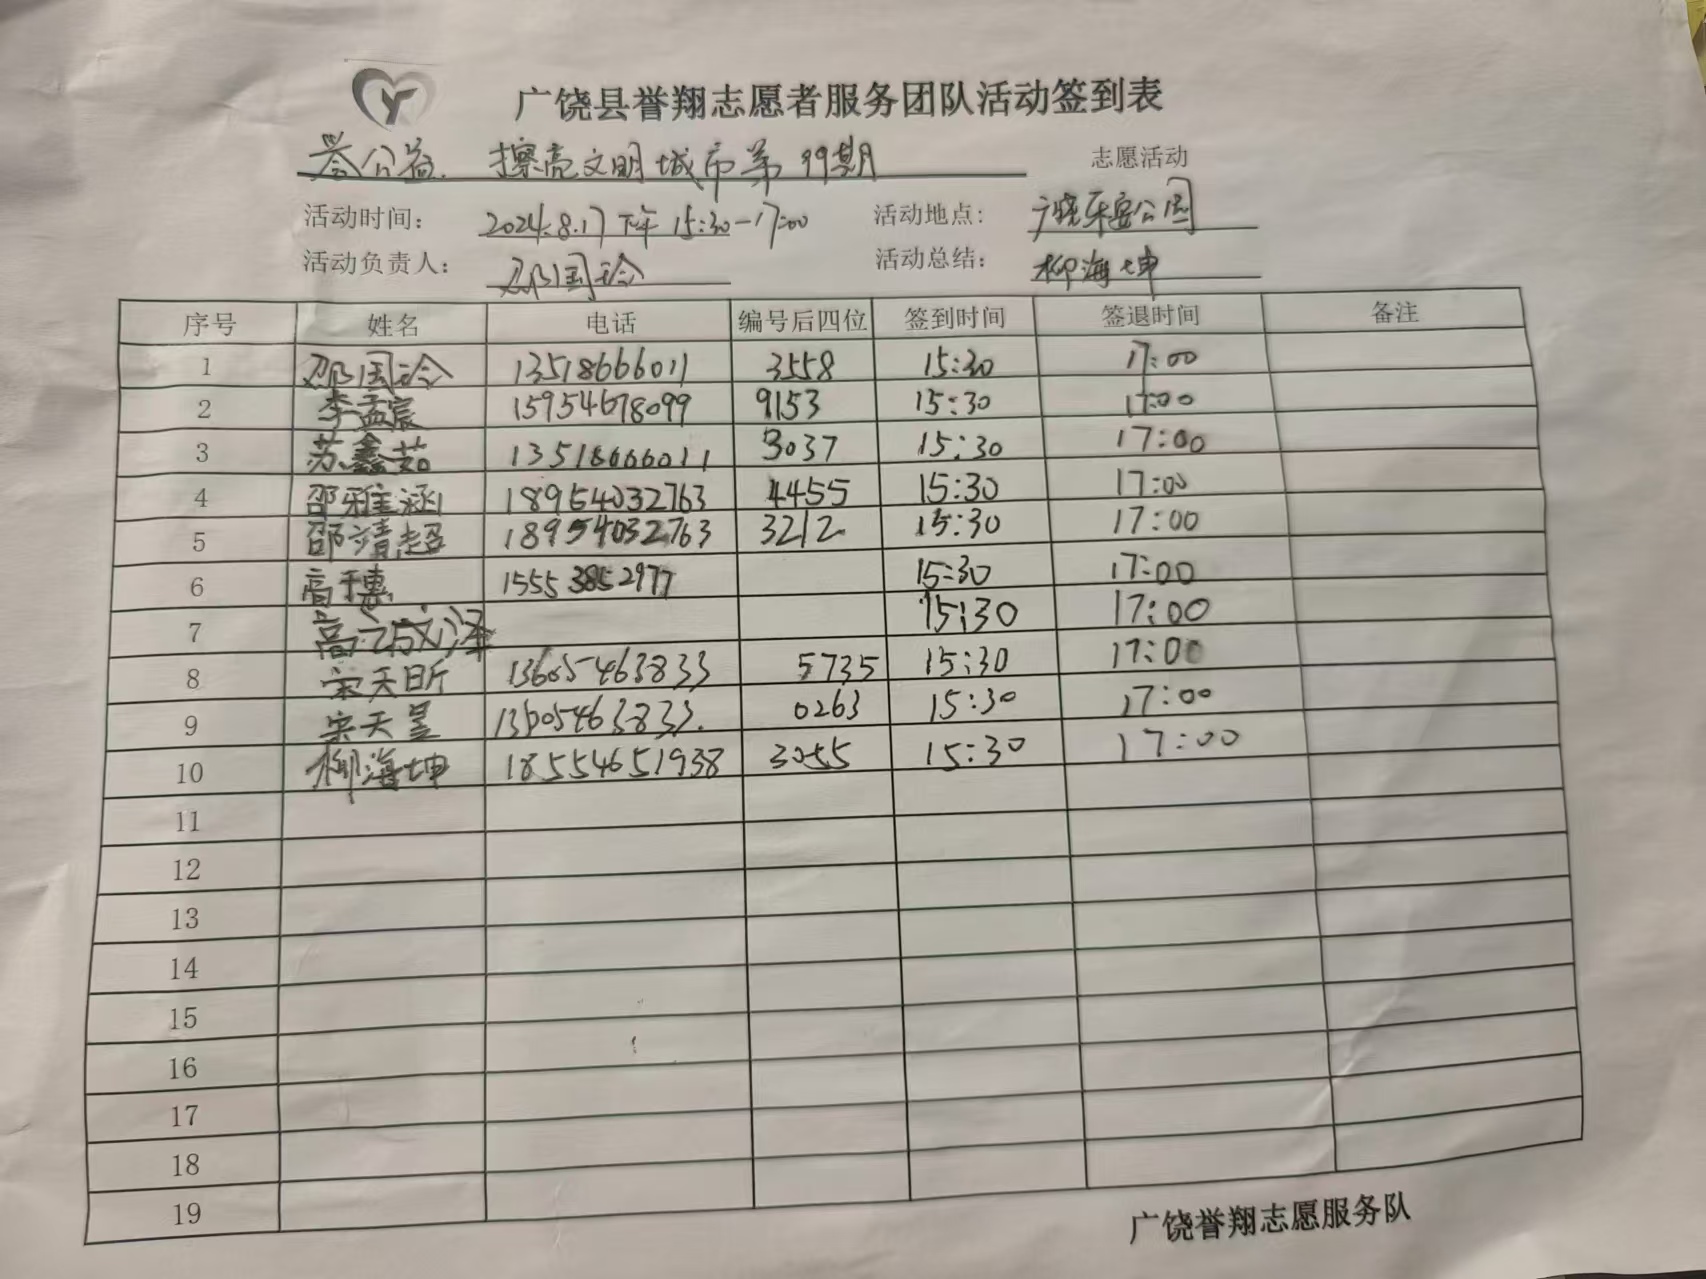 广饶县誉翔志愿者服务团队活动签到表
誉公益 擦亮文明城市第99期 志愿活动
活动时间： 2024.8.17下午15:30-17:00 活动地点： 广饶乐安公园
活动负责人： 邵国玲 活动总结： 柳海坤
序号 姓名 电话 编号后四位 签到时间 签退时间 备注
1 邵国玲 13518666011 3558 15:30 17:00
2 李孟宸 15954678099 9153 15:30 17:00
3 苏鑫茹 13518666011 3037 15:30 17:00
4 邵雅涵 18954032763 4455 15:30 17:00
5 邵靖超 18954032763 3212 15:30 17:00
6 高于惠 15553852977 15:30 17:00
7 高 泽 15:30 17:00
8 宋天昕 13605463833 5735 15:30 17:00
9 宋天昱 13605463833. 0263 15:30 17:00
10 柳海坤 18554651938 3055 15:30 17:00
11
12
13
14
15
16
17
18
19
广饶誉翔志愿服务队